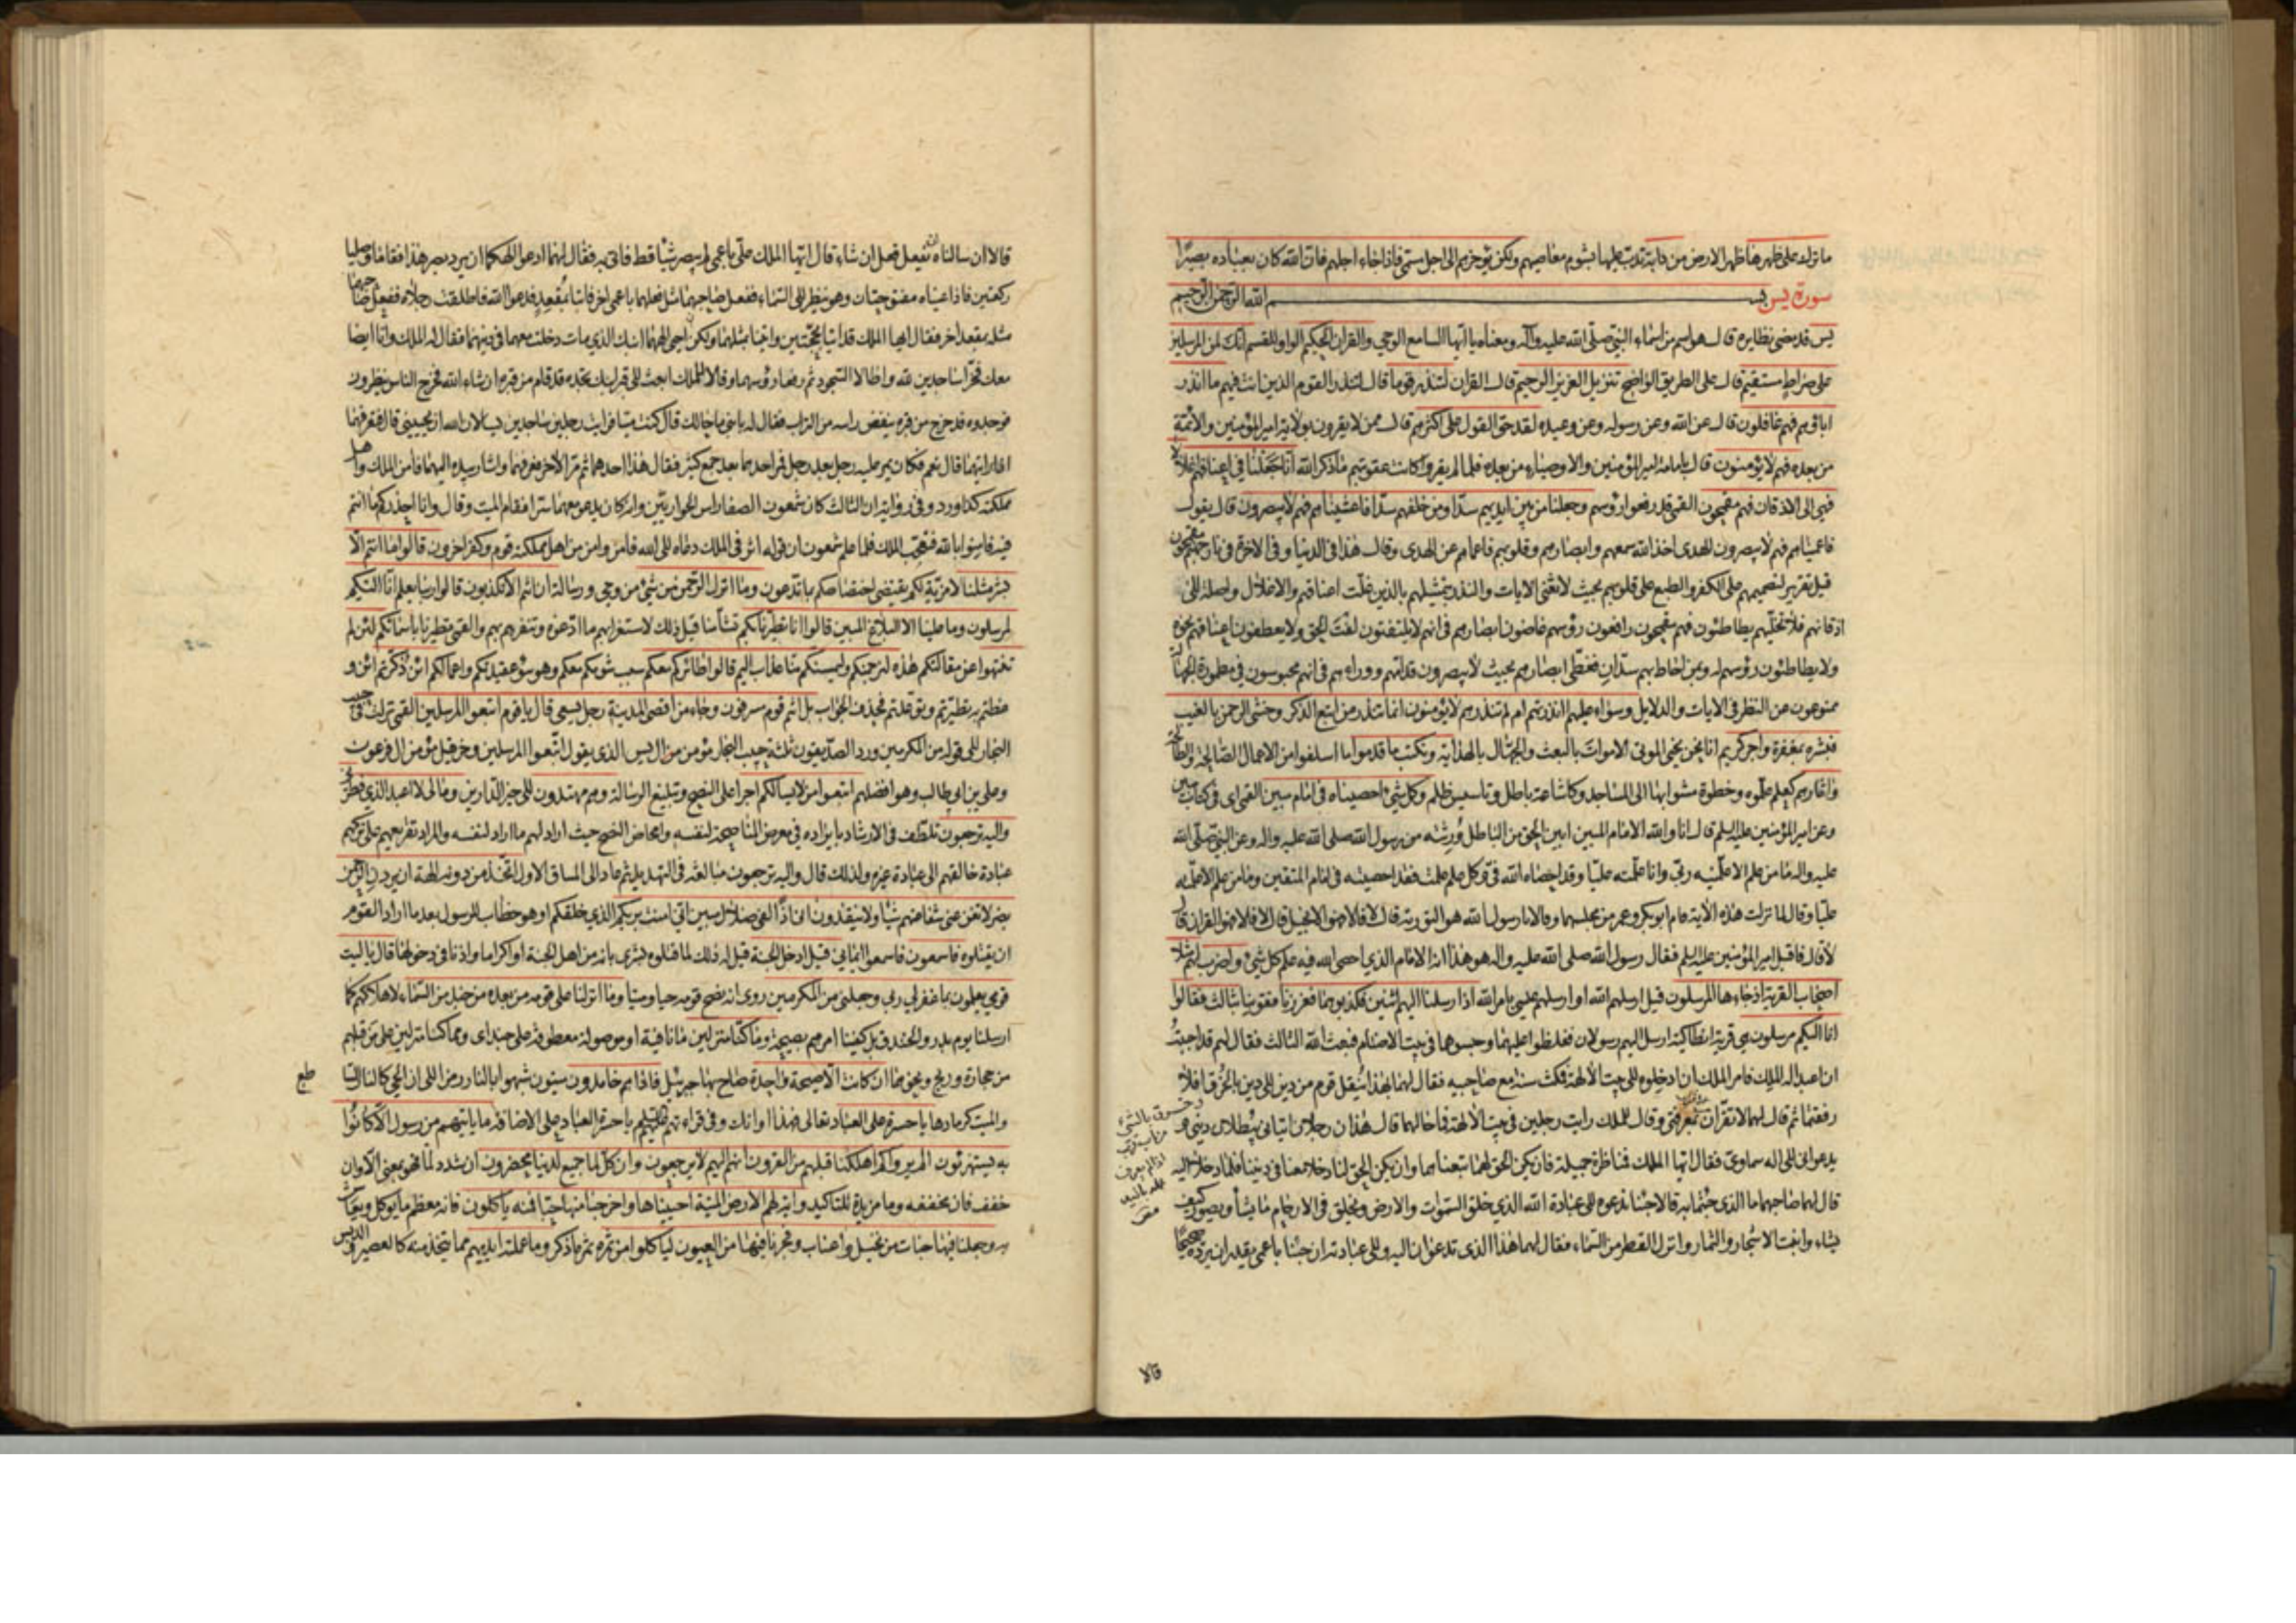 ما ترك على ظهرها ظهر الارض من دابة تدب عليها بشوم معاصيهم ولكن يؤخرهم الى اجل مسمى فاذا جاء اجلهم فان الله كان بعباده بصيرا
سورة يس بسم الله الرحمن الرحيم
يس قد مضى نظايره قال هو اسم من اسماء النبي صلى الله عليه وآله ومعناه يا ايها السامع الوحي والقران الحكيم الواو للقسم انك لمن المرسلين
على صراط مستقيم قال على الطريق الواضح تنزيل العزيز الرحيم قال القران لتنذر قوما قال لتنذر القوم الذين انت فيهم ما انذر
اباؤهم فهم غافلون قال عن الله وعن رسوله وعن وعيده لقد حق القول على اكثرهم قال ممن لا يقرون بولاية امير المؤمنين والائمة
من بعده فهم لا يؤمنون قال بامامة امير المؤمنين والاوصياء من بعده فلما لم يقروا كانت عقوبتهم ما ذكر الله انا جعلنا في اعناقهم اغلالا
فهي الى الاذقان فهم مقمحون القمي قد رفعوا رؤسهم وجعلنا من بين ايديهم سدا ومن خلفهم سدا فاغشيناهم فهم لا يبصرون قال يقول
فاعميناهم فهم لا يبصرون الهدى اخذ الله سمعهم وابصارهم وقلوبهم فاعماهم عن الهدى وقال هذا في الدنيا وفي الاخرة في نار جهنم مقمحون
قيل تقرير لتصميمهم على الكفر والطبع على قلوبهم بحيث لا تغني الايات والنذر بتمثيلهم بالذين غلت اعناقهم والاغلال واصلة الى
اذقانهم فلا تخليهم يطاطئون فهم مقمحون رافعون رؤسهم غاضون ابصارهم في انهم لا يلتفتون لفت الحق ولا يعطفون اعناقهم نحوه
ولا يطاطئون رؤسهم له وبمن احاط بهم سدان فغطى ابصارهم بحيث لا يبصرون قدامهم ووراءهم في انهم محبوسون في مطمورة الجهالة
ممنوعون عن النظر في الايات والدلايل وسواء عليهم ءانذرتهم ام لم تنذرهم لا يؤمنون انما تنذر من اتبع الذكر وخشي الرحمن بالغيب
فبشره بمغفرة واجر كريم انا نحن نحيي الموتى الاموات بالبعث والجهال بالهداية ونكتب ما قدموا ما اسلفوا من الاعمال الصالحة والطالحة
واثارهم كعلم علموه وخطوة مشوا بها الى المساجد وكاشاعة باطل وتاسيس ظلم وكل شيء احصيناه في امام مبين القمي اي في كتاب مبين
وعن امير المؤمنين عليه السلم قال انا والله الامام المبين ابين الحق من الباطل ورثته من رسول الله صلى الله عليه واله وعن النبي صلى الله
عليه واله ما من علم الا علمنيه ربي وانا علمته عليا وقد احصاه الله في وكل علم علمت فقد احصيته في امام المتقين وما من علم الا علمته
عليا وقال لما نزلت هذه الآية قام ابو بكر وعمر من مجلسهما وقالا يا رسول الله هو التورية قال لا قالا فهو الانجيل قال لا قالا فهو القران قال
لا قال فاقبل امير المؤمنين عليه السلم فقال رسول الله صلى الله عليه واله هو هذا انه الامام الذي احصى الله فيه علم كل شيء واضرب لهم مثلا
اصحاب القرية اذ جاءها المرسلون قيل ارسلهم الله او ارسلهم عيسى بامر الله اذ ارسلنا اليهم اثنين فكذبوهما فعززنا فقوينا بثالث فقالوا
انا اليكم مرسلون هي قرية انطاكية ارسل اليهم رسولان فغلظوا عليهما وحبسوهما في بيت الاصنام فبعث الله الثالث فقال لهم قد احببت
ان اعبد اله الملك فامر الملك ان ادخلوه الى بيت الالهة فمكث سنة مع صاحبيه فقال لهما بهذا ننقل قوم من دين الى دين بالخرق افلا
رفقتما ثم قال لهما لا تقران بمعرفتي وقال للملك رايت رجلين في بيت الالهة فما حالهما قال هذان رجلان اتياني يبطلان ديني و
يدعواني الى اله سماوي فقال ايها الملك فمناظرة جميلة فان يكن الحق لهما اتبعناهما وان يكن الحق لنا دخلا معنا في ديننا فلما دخلا اليه
قال لهما صاحبهما ما الذي جئتما به قالا جئنا ندعوه الى عبادة الله الذي خلق السموات والارض ويخلق في الارحام ما يشاء ويصور كيف
يشاء وانبت الاشجار والثمار وانزل القطر من السماء فقال لهما هذا الذي تدعوان اليه والى عبادته ان جئنا باعمى يقدر ان يرده صحيحا
قالا
قالا ان سالناه ان يفعل فعل ان شاء قال ايها الملك علي باعمى لم يبصر شيئا قط فاتي به فقال لهما ادعوا الهكما ان يرد بصر هذا فقاما وصليا
ركعتين فاذا عيناه مفتوحتان وهو ينظر الى السماء ففعل صاحبهما مثل فعلهما باعمى اخر فاتيا بمقعد فدعوا الله فاطلقت رجلاه ففعل صاحبهما
مثله بمقعد اخر فقال ايها الملك قد اتيا بحجتين واتينا بمثلهما ولكن ان احيى الههما ابنك الذي مات دخلت معهما في دينهما فقال له الملك وانا ايضا
معك فخرا ساجدين لله واطالا السجود ثم رفعا رؤسهما وقالا للملك ابعث الى قبر ابنك تجده قد قام من قبره ان شاء الله فخرج الناس ينظرون
فوجدوه قد خرج من قبره ينفض راسه من التراب فقال له يا بني ما حالك قال كنت ميتا فرايت رجلين ساجدين يسالان الله ان يحييني قال افتعرفهما
اذا رايتهما قال نعم فكان يمر عليه رجل بعد رجل فمر احدهما بعد جمع كثير فقال هذا احدهما ثم مر الاخر فعرفهما واشار بيده اليهما فامن الملك واهل
مملكته كذا ورد وفي رواية ان الثالث كان شمعون الصفا راس الحواريين وانه كان يدعو معهما سترا فقام الميت وقال وانا احذركم ما انتم
فيه فامنوا بالله فتعجب الملك فلما علم شمعون ان قوله اثر في الملك دعاه الى الله فامن وامن من اهل مملكته قوم وكفر اخرون قالوا ما انتم الا
بشر مثلنا لا مزية لكم يقتضي اختصاصكم بما تدعون وما انزل الرحمن من شيء من وحي ورسالة ان انتم الا تكذبون قالوا ربنا يعلم انا اليكم
لمرسلون وما علينا الا البلاغ المبين قالوا انا تطيرنا بكم تشأمنا قيل ذلك لاستغرابهم ما ادعوه وتنفرهم بهم والقمي تطيرنا باسمائكم لئن لم
تنتهوا عن مقالتكم هذه لنرجمنكم وليمسنكم منا عذاب اليم قالوا طائركم معكم سبب شومكم معكم وهو سوء عقيدتكم واعمالكم ائن ذكرتم ائن و
عظتم به تطيرتم وتوعدتم فحذف الجواب بل انتم قوم مسرفون وجاء من اقصى المدينة رجل يسعى قال يا قوم اتبعوا المرسلين القمي نزلت في حبيب
النجار الى قوله من المكرمين ورد الصديقون ثلثة حبيب النجار مؤمن من ال يس الذي يقول اتبعوا المرسلين وحزقيل مؤمن ال فرعون
وعلي بن ابي طالب وهو افضلهم اتبعوا من لا يسالكم اجرا على النصح وتبليغ الرسالة وهم مهتدون الى خير الدارين وما لي لا اعبد الذي فطرني
واليه ترجعون تلطف في الارشاد بايراده في معرض المناصحة لنفسه وامحاض النصح حيث اراد لهم ما اراد لنفسه والمراد تقريعهم على تركهم
عبادة خالقهم الى عبادة غيره ولذلك قال واليه ترجعون مبالغة في التهديد ثم عاد الى المساق الاول ءاتخذ من دونه الهة ان يردن الرحمن
بضر لا تغن عني شفاعتهم شيئا ولا ينقذون اني اذا لفي ضلال مبين اني امنت بربكم الذي خلقكم او هو خطاب للرسول بعد ما اراد القوم
ان يقتلوه فاسمعون فاسمعوا ايماني قيل ادخل الجنة قيل له ذلك لما قتلوه بشرى بانه من اهل الجنة او اكراما واذنا في دخولها قال يا ليت
قومي يعلمون بما غفر لي ربي وجعلني من المكرمين روى انه نصح قومه حيا وميتا وما انزلنا على قومه من بعده من جند من السماء لاهلاكهم كما
ارسلنا يوم بدر والخندق بل كفينا امرهم بصيحة وما كنا منزلين ما نافية او موصولة معطوفة على جند اي ومما كنا منزلين على من قبلهم
من حجارة وريح ونحوهما ان كانت الا صيحة واحدة صاح بها جبرئيل فاذا هم خامدون ميتون شبهوا بالنار رمزا الى ان الحي كالنار الساطع
والميت كرمادها يا حسرة على العباد تعالى فهذا اوانك وفي قراءتهم عليهم السلم يا حسرة العباد على الاضافة ما ياتيهم من رسول الا كانوا
به يستهزئون الم يروا كم اهلكنا قبلهم من القرون انهم اليهم لا يرجعون وان كل لما جميع لدينا محضرون ان شدد لما فهو بمعنى الا وان
خفف فان مخففة وما مزيدة للتاكيد واية لهم الارض الميتة احييناها واخرجنا منها حبا فمنه ياكلون فانه معظم ما يؤكل ويعاش
به وجعلنا فيها جنات من نخيل واعناب وفجرنا فيها من العيون لياكلوا من ثمره ثمر ما ذكر وما عملته ايديهم مما يتخذ منه كالعصير والدبس